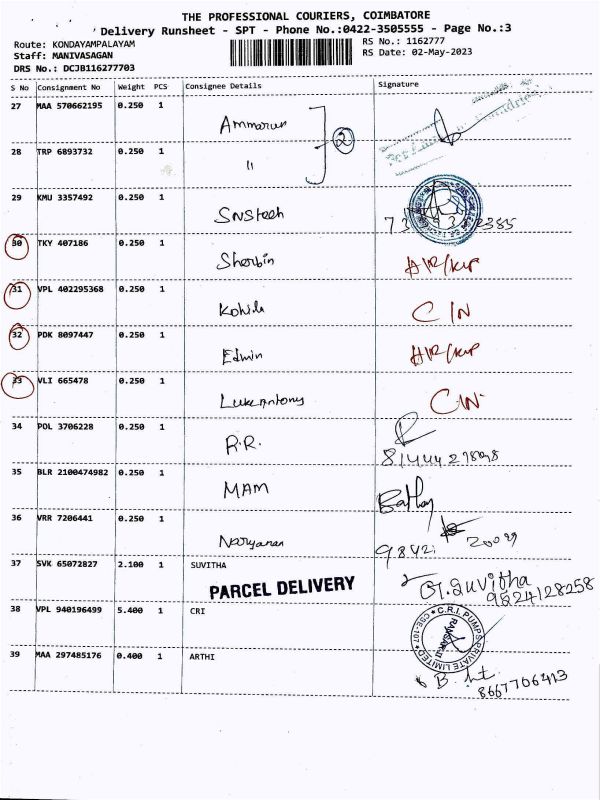 THE PROFESSIONAL COURIERS, COIMBATORE
Delivery Runsheet - SPT - Phone No.:0422-3505555 - Page No.:3
Route: KONDAYAMPALAYAM RS No.: 1162777
Staff: MANIVASAGAN RS Date: 02-May-2023
DRS No.: DCJB116277703
S No Consignment No Weight PCS Consignee Details Signature
27 MAA 570662195 0.250 1 Ammarun
2
28 TRP 6893732 0.250 1 "
29 KMU 3357492 0.250 1 SNStech
30 TKY 407186 0.250 1 Sherbin
31 VPL 402295368 0.250 1 C/N
32 PDK 8097447 0.250 1 Edwin
33 VLI 665478 0.250 1 Luke Antony C/N
34 POL 3706228 0.250 1 R.R.
35 BLR 2100474982 0.250 1 MAM
36 VRR 7206441 0.250 1 Naryanan
37 SVK 65072827 2.100 1 SUVITHA G.Suvitha
PARCEL DELIVERY 9524128258
38 VPL 940196499 5.400 1 CRI C.R.I. PUMPS PRIVATE LIMITED
39 MAA 297485176 0.400 1 ARTHI
8667706413